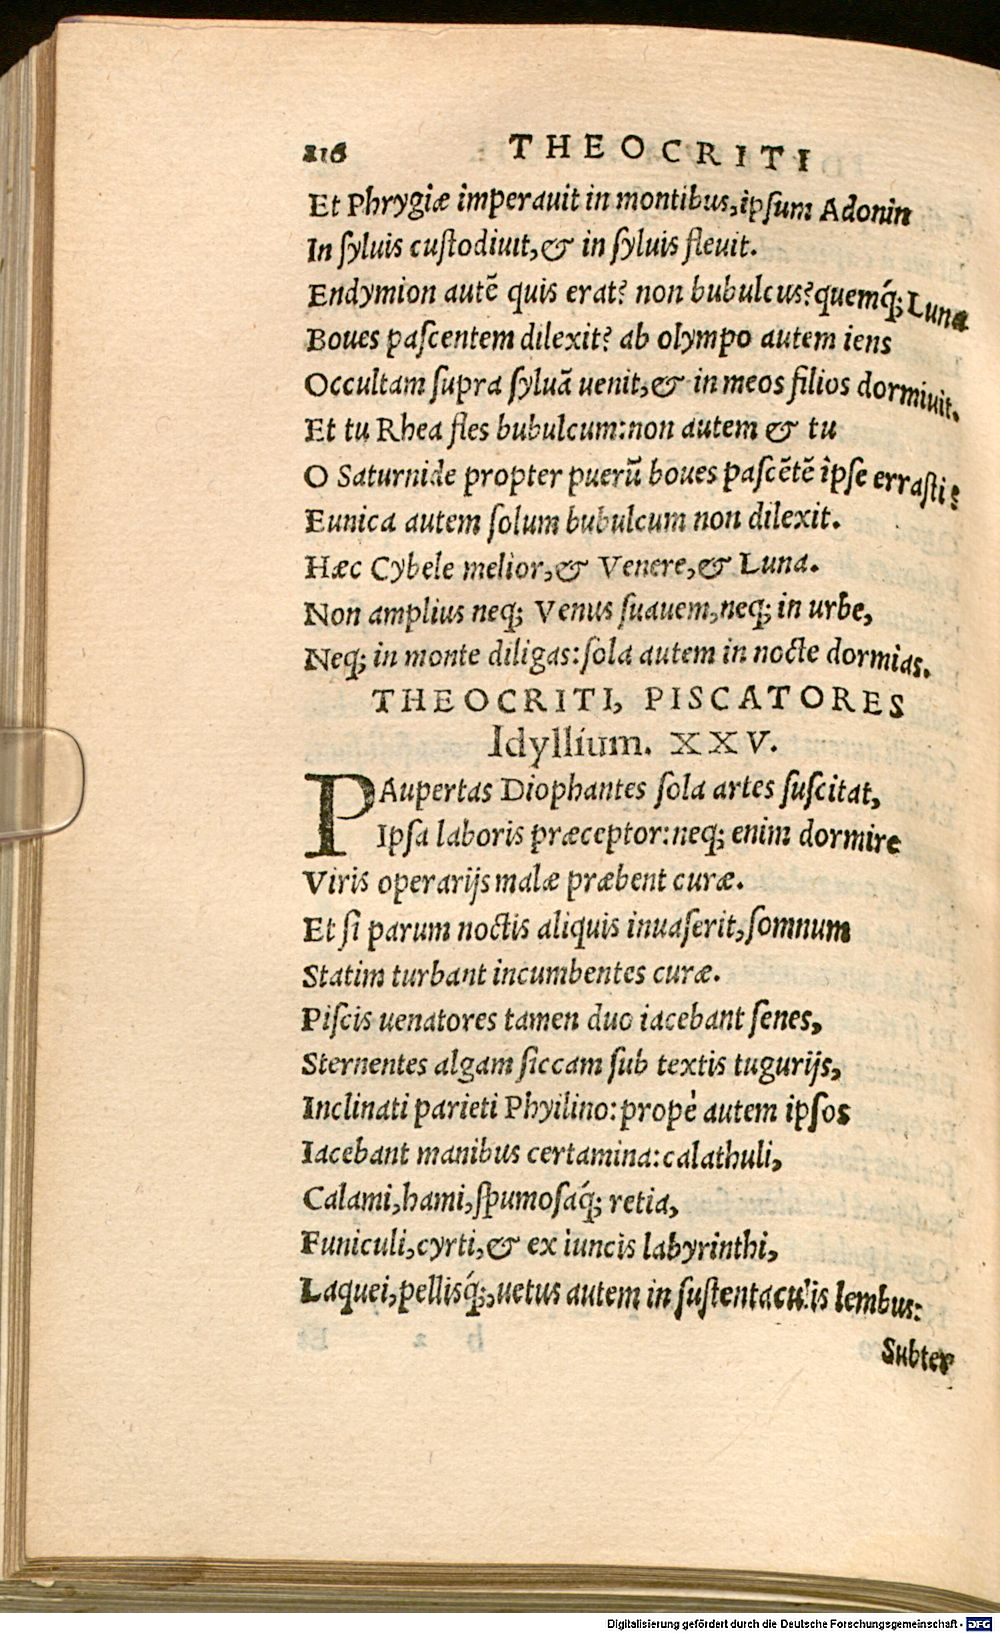 216 THEOCRITI
Et Phrygiæ imperauit in montibus, ipſum Adonin
In ſyluis cuſtodiuit, & in ſyluis fleuit.
Endymion autē quis erat? non bubulcus? quemq́; Luna
Boues paſcentem dilexit? ab olympo autem iens
Occultam ſupra ſyluā uenit, & in meos filios dormiuit.
Et tu Rhea fles bubulcum: non autem & tu
O Saturnide propter puerū boues paſcētē ipſe erraſti?
Eunica autem ſolum bubulcum non dilexit.
Hæc Cybele melior, & Venere, & Luna.
Non amplius neq; Venus ſuauem, neq; in urbe,
Neq; in monte diligas: ſola autem in nocte dormias.
THEOCRITI, PISCATORES
Idyllium. XXV.
PAupertas Diophantes ſola artes ſuſcitat,
Ipſa laboris præceptor: neq; enim dormire
Viris operarijs malæ præbent curæ.
Et ſi parum noctis aliquis inuaſerit, ſomnum
Statim turbant incumbentes curæ.
Piſcis uenatores tamen duo iacebant ſenes,
Sternentes algam ſiccam ſub textis tugurijs,
Inclinati parieti Phyilino: propè autem ipſos
Iacebant manibus certamina: calathuli,
Calami, hami, ſpumoſaq́; retia,
Funiculi, cyrti, & ex iuncis labyrinthi,
Laquei, pellisq́;, uetus autem in ſuſtentaculis lembus:
Subter
Digitalisierung gefördert durch die Deutsche Forschungsgemeinschaft - DFG